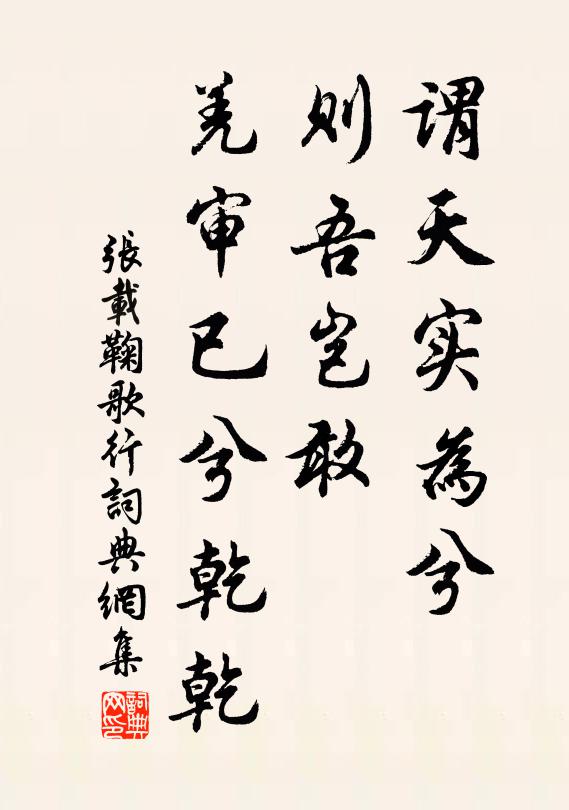 謂天实為兮
則吾岂敢
羌审已兮乾乾
張載鞠歌行詞典網集
詞典网印